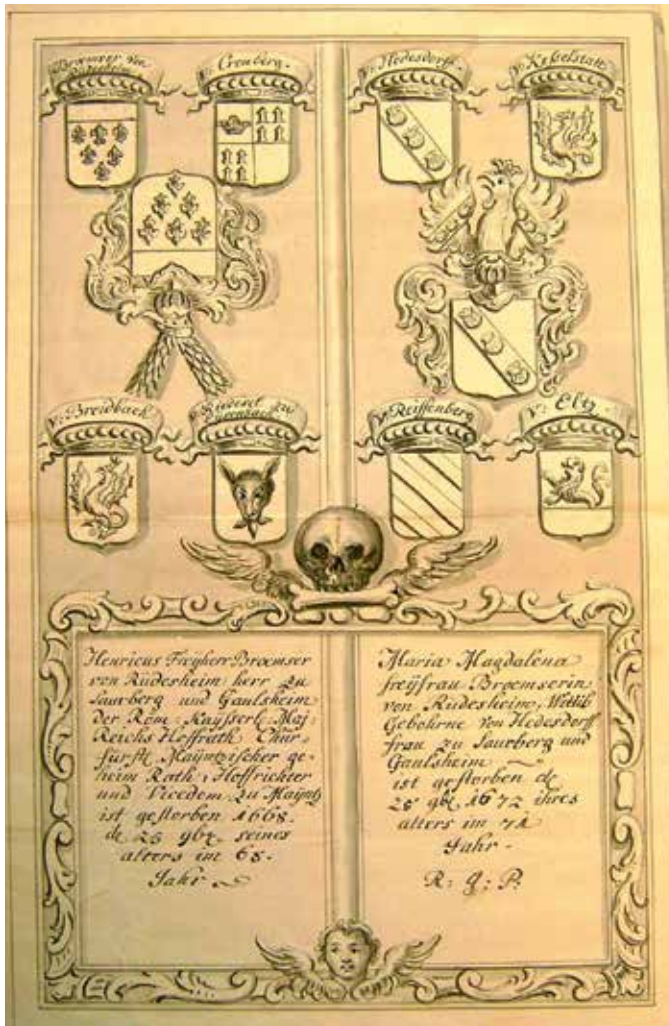 Broemser von
Rüdesheim
v: Cronberg.
v: Hedesdorff.
v: Keßelstatt
v: Breidbach
v: Riedesel zu
v: Reiffenberg
v: Eltz.
Henricus Freyherr Broemser
von Rüdesheim herr zu
Saurberg und Gaulsheim
der Röm: Kayßerl: Maj:
Reichs Hoffrath Chur-
fürstl: Mayntzischer ge-
heim Rath, Hoffrichter
und Vicedom zu Mayntz
ist gestorben 1668.
9br. seines
alters im 68.
Jahr
Maria Magdalena
freyfrau Broemserin
von Rüdesheim, Wittib
Gebohrne von Hedesdorff
frau zu Saurberg und
Gaulsheim
ist gestorben de
28 9br. 1672 ihres
alters im 71
Jahr.
R: q: P.